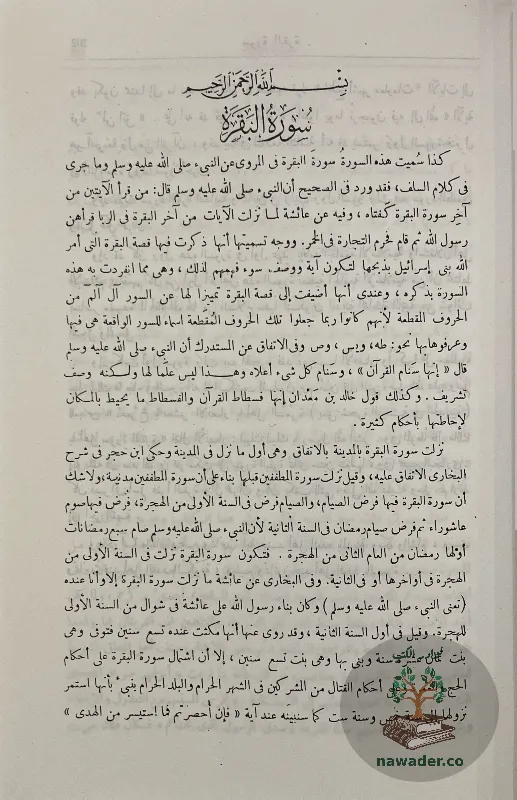 بسم الله الرحمن الرحيم
سورة البقرة
كذا سُميت هذه السورةُ سورةَ البقرة فى المروى عن النبىء صلى الله عليه وسلم وما جرى
فى كلام السلف، فقد ورد فى الصحيح أن النبىء صلى الله عليه وسلم قال: من قرأ الآيتين من
آخر سورة البقرة كَفتاه ، وفيه عن عائشة لما نزلت الآيات من آخر البقرة فى الربا قرأهن
رسول الله ثم قام فحرم التجارة فى الخمر. ووجه تسميتها أنها ذكرت فيها قصة البقرة التى أمر
الله بنى إسرائيل بذبحها لتكون آية ووصف سوء فهمهم لذلك ، وهى مما انفردت به هذه
السورة بذكره ، وعندى أنها أضيفت إلى قصة البقرة تمييزا لها عن السور آل آلم من
الحروف المقطعة لأنهم كانوا ربما جعلوا تلك الحروف المُقطَّعة أسماء للسور الواقعة هى فيها
وعرفوها بها نحو: طه، ويس، وص وفى الاتفاق عن المستدرك أن النبىء صلى الله عليه وسلم
قال « إنها سَنام القرآن » ، وسَنام كل شىء أعلاه وهذا ليس علَما لها ولكنه وصف
تشريف . وكذلك قول خالد بن مَعْدان إنها فسطاط القرآن والفسطاط ما يحيط بالمكان
لإحاطتها بأحكام كثيرة .
نزلت سورة البقرة بالمدينة بالاتفاق وهى أول ما نزل فى المدينة وحكى ابن حجر فى شرح
البخارى الاتفاق عليه ، وقيل نزلت سورة المطففين قبلها بناء على أن سورة المطففين مدنية، ولاشك
أن سورة البقرة فيها فرض الصيام، والصيام فرض فى السنة الأولى من الهجرة، فُرض فيها صوم
عاشوراء ثم فرض صيام رمضان فى السنة الثانية لأن النبىء صلى الله عليه وسلم صام سبع رمضانات
أولها رمضان من العام الثانى من الهجرة . فتكون سورة البقرة نزلت فى السنة الأولى من
الهجرة فى أواخرها أو فى الثانية. وفى البخارى عن عائشة ما نزلت سورة البقرة إلا وأنا عنده
(تعنى النبىء صلى الله عليه وسلم) وكان بناء رسول الله على عائشة فى شوال من السنة الأولى
للهجرة. وقيل فى أول السنة الثانية ، وقد روى عنها أنها مكثت عنده تسع سنين فتوفى وهى
بنت ثمان عشرة سنة وبنى بها وهى بنت تسع سنين ، إلا أن اشتمال سورة البقرة على أحكام
الحج والعمرة وعلى أحكام القتال من المشركين فى الشهر الحرام والبلد الحرام ينبىء بأنها استمر
نزولها إلى سنة خمس وسنة ست كما سنبينه عند آية « فإن أُحصرتم فما استيسر من الهدى »
nawader.co